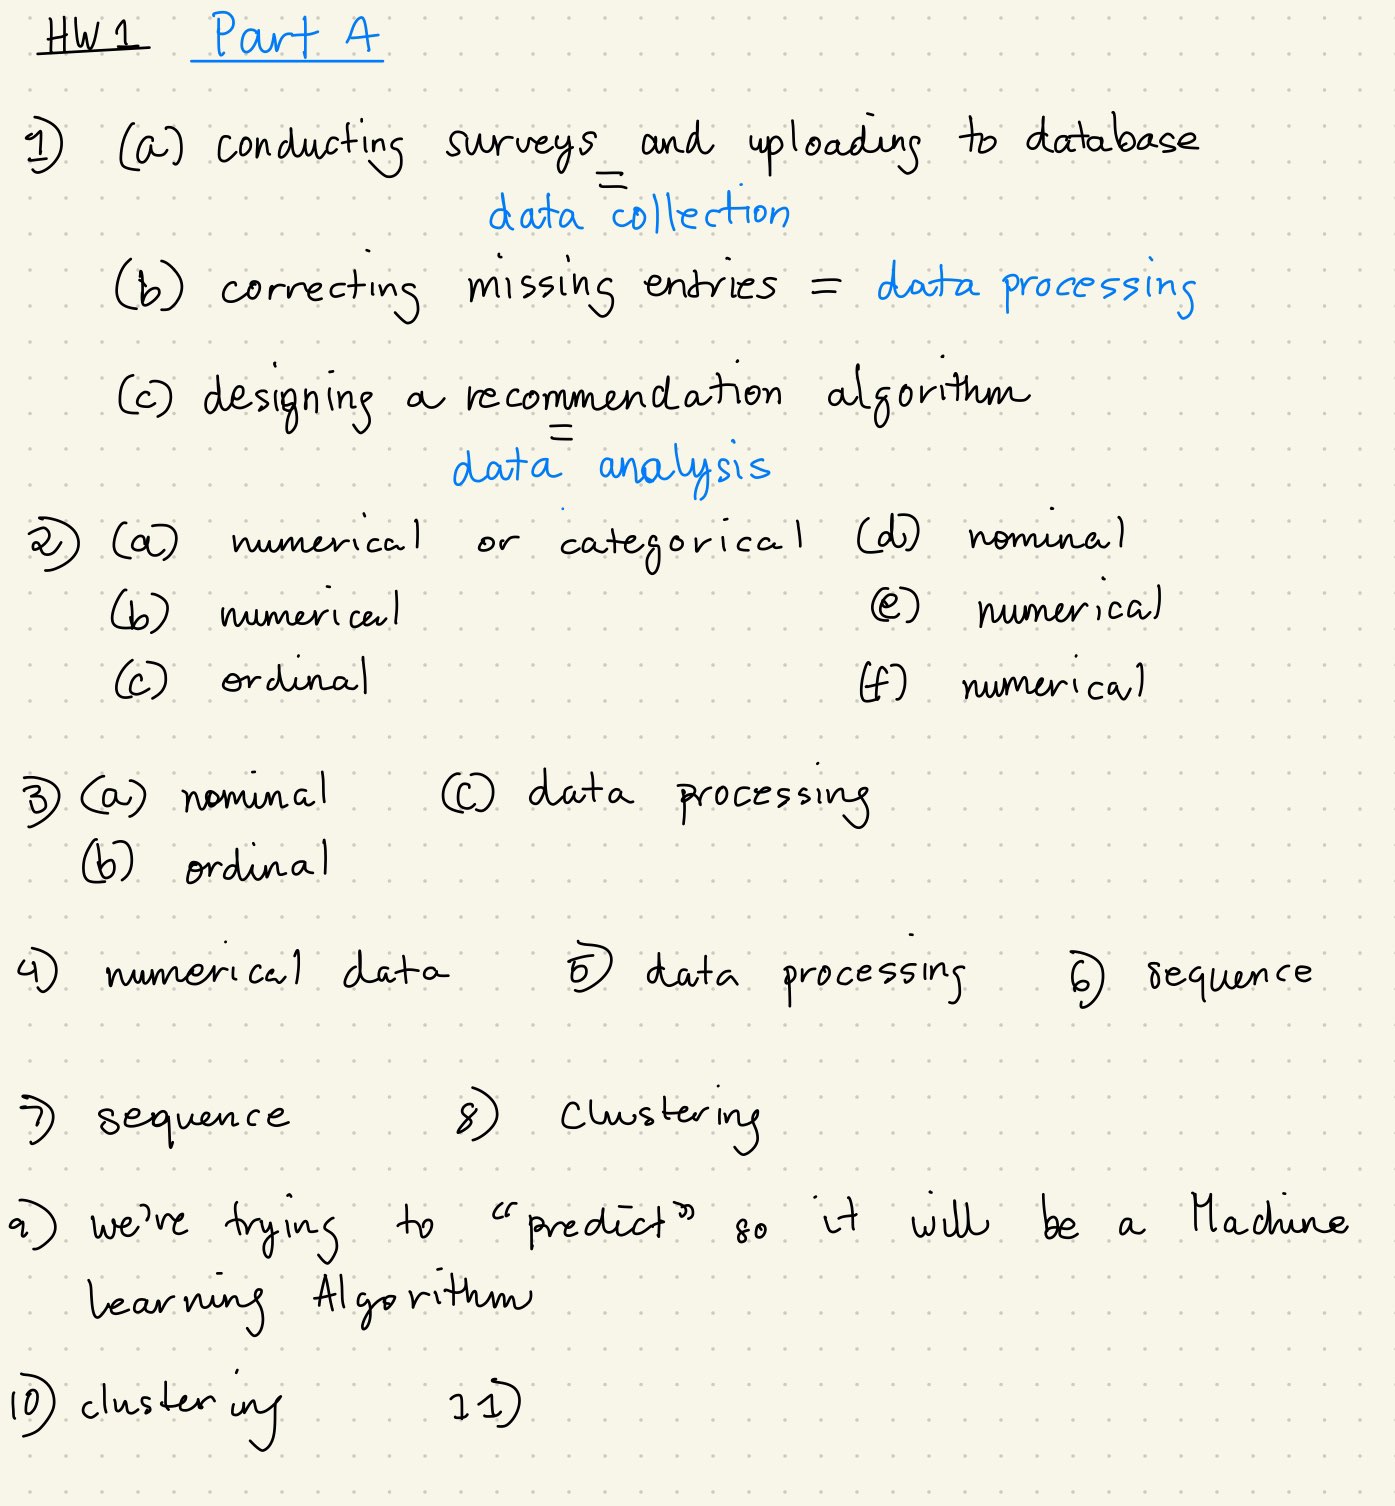 HW1 Part A
1) (a) conducting surveys and uploading to database
=
data collection
(b) correcting missing entries = data processing
(c) designing a recommendation algorithm
=
data analysis
2) (a) numerical or categorical (d) nominal
(b) numerical (e) numerical
(c) ordinal (f) numerical
3) (a) nominal (c) data processing
(b) ordinal
4) numerical data 5) data processing 6) sequence
7) sequence 8) clustering
9) we're trying to "predict" so it will be a Machine
Learning Algorithm
10) clustering 11)